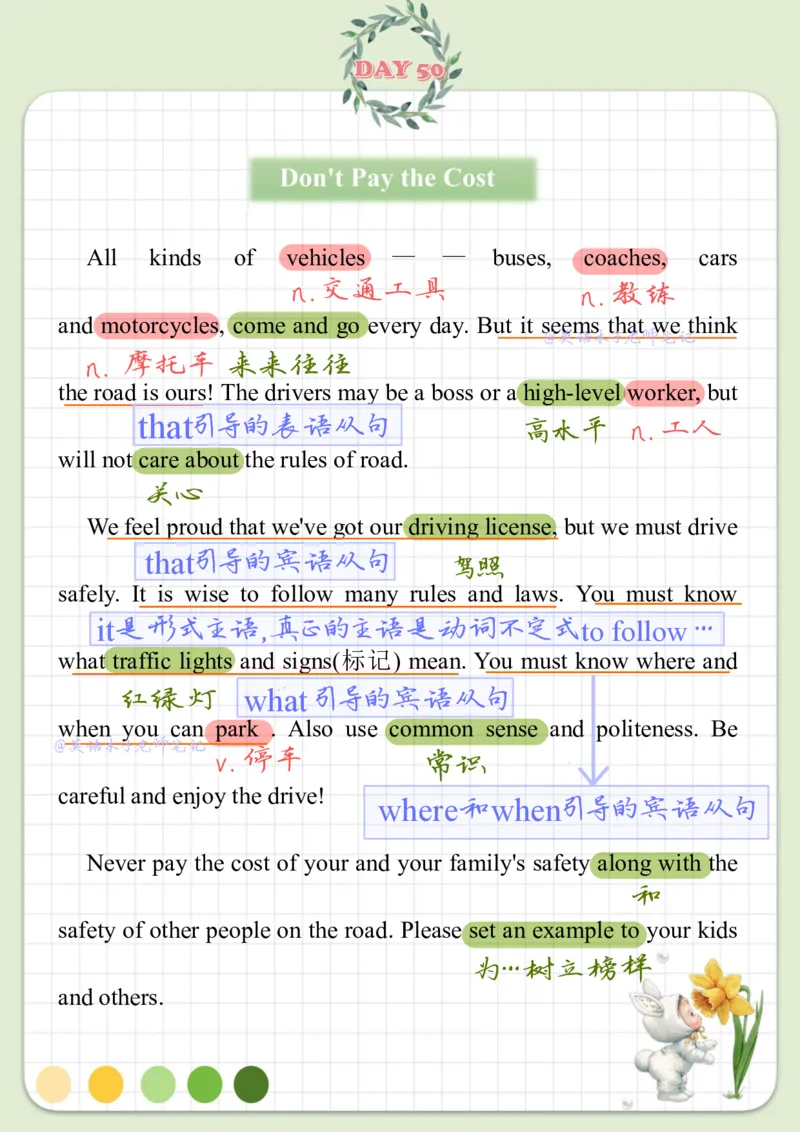 DAY 50
Don't Pay the Cost
All kinds of vehicles — — buses, coaches, cars
n. 交通工具 n. 教练
and motorcycles, come and go every day. But it seems that we think
@英语木子老师笔记
n. 摩托车 来来往往
the road is ours! The drivers may be a boss or a high-level worker, but
that引导的表语从句 高水平 n. 工人
will not care about the rules of road.
关心
We feel proud that we've got our driving license, but we must drive
that引导的宾语从句 驾照
safely. It is wise to follow many rules and laws. You must know
it是形式主语,真正的主语是动词不定式to follow…
what traffic lights and signs(标记) mean. You must know where and
红绿灯 what引导的宾语从句
when you can park . Also use common sense and politeness. Be
@英语木子老师笔记
v. 停车 常识
careful and enjoy the drive!
where和when引导的宾语从句
Never pay the cost of your and your family's safety along with the
和
safety of other people on the road. Please set an example to your kids
为…树立榜样
and others.